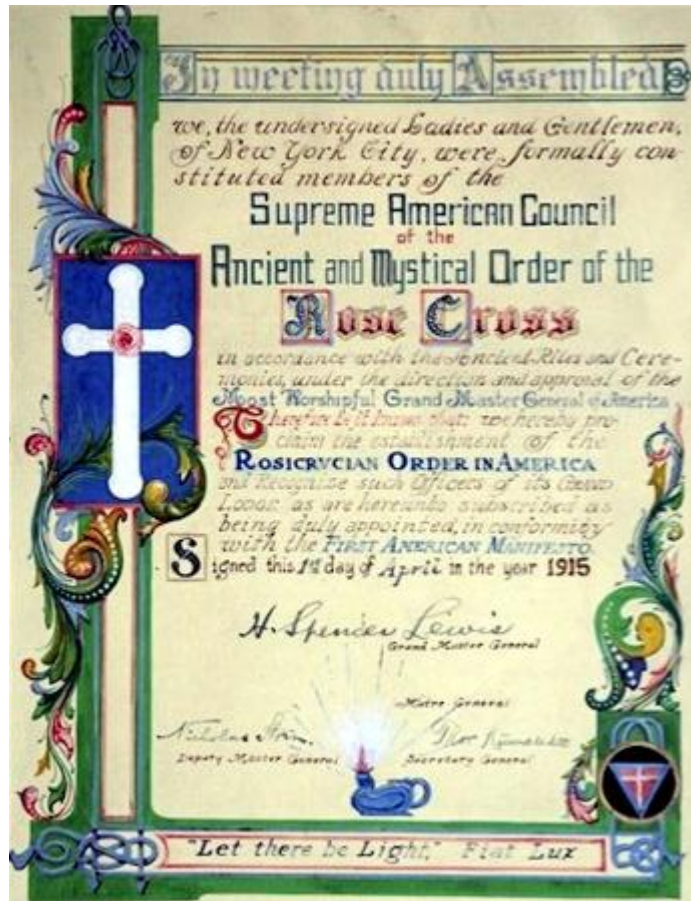 In meeting duly Assembled
we, the undersigned Ladies and Gentlemen,
of New York City, were formally con-
stituted members of the
Supreme American Council
of the
Ancient and Mystical Order of the
Rose Cross
in accordance with the Ancient Rites and Cere-
monies, under the direction and approval of the
Moost Worshipful Grand Master General of America
Therefore be it known that: we hereby pro-
claim the establishment of the
ROSICRVCIAN ORDER IN AMERICA
and Recognize such Officers of its Grand
Lodge as are hereunto subscribed as
being duly appointed, in conformity
with the FIRST AMERICAN MANIFESTO.
Signed this 1st day of April in the year 1915
H. Spencer Lewis
Grand Master General
Matre General
Nicholas
Thor
Deputy Master General
Secretary General
"Let there be Light," Fiat Lux